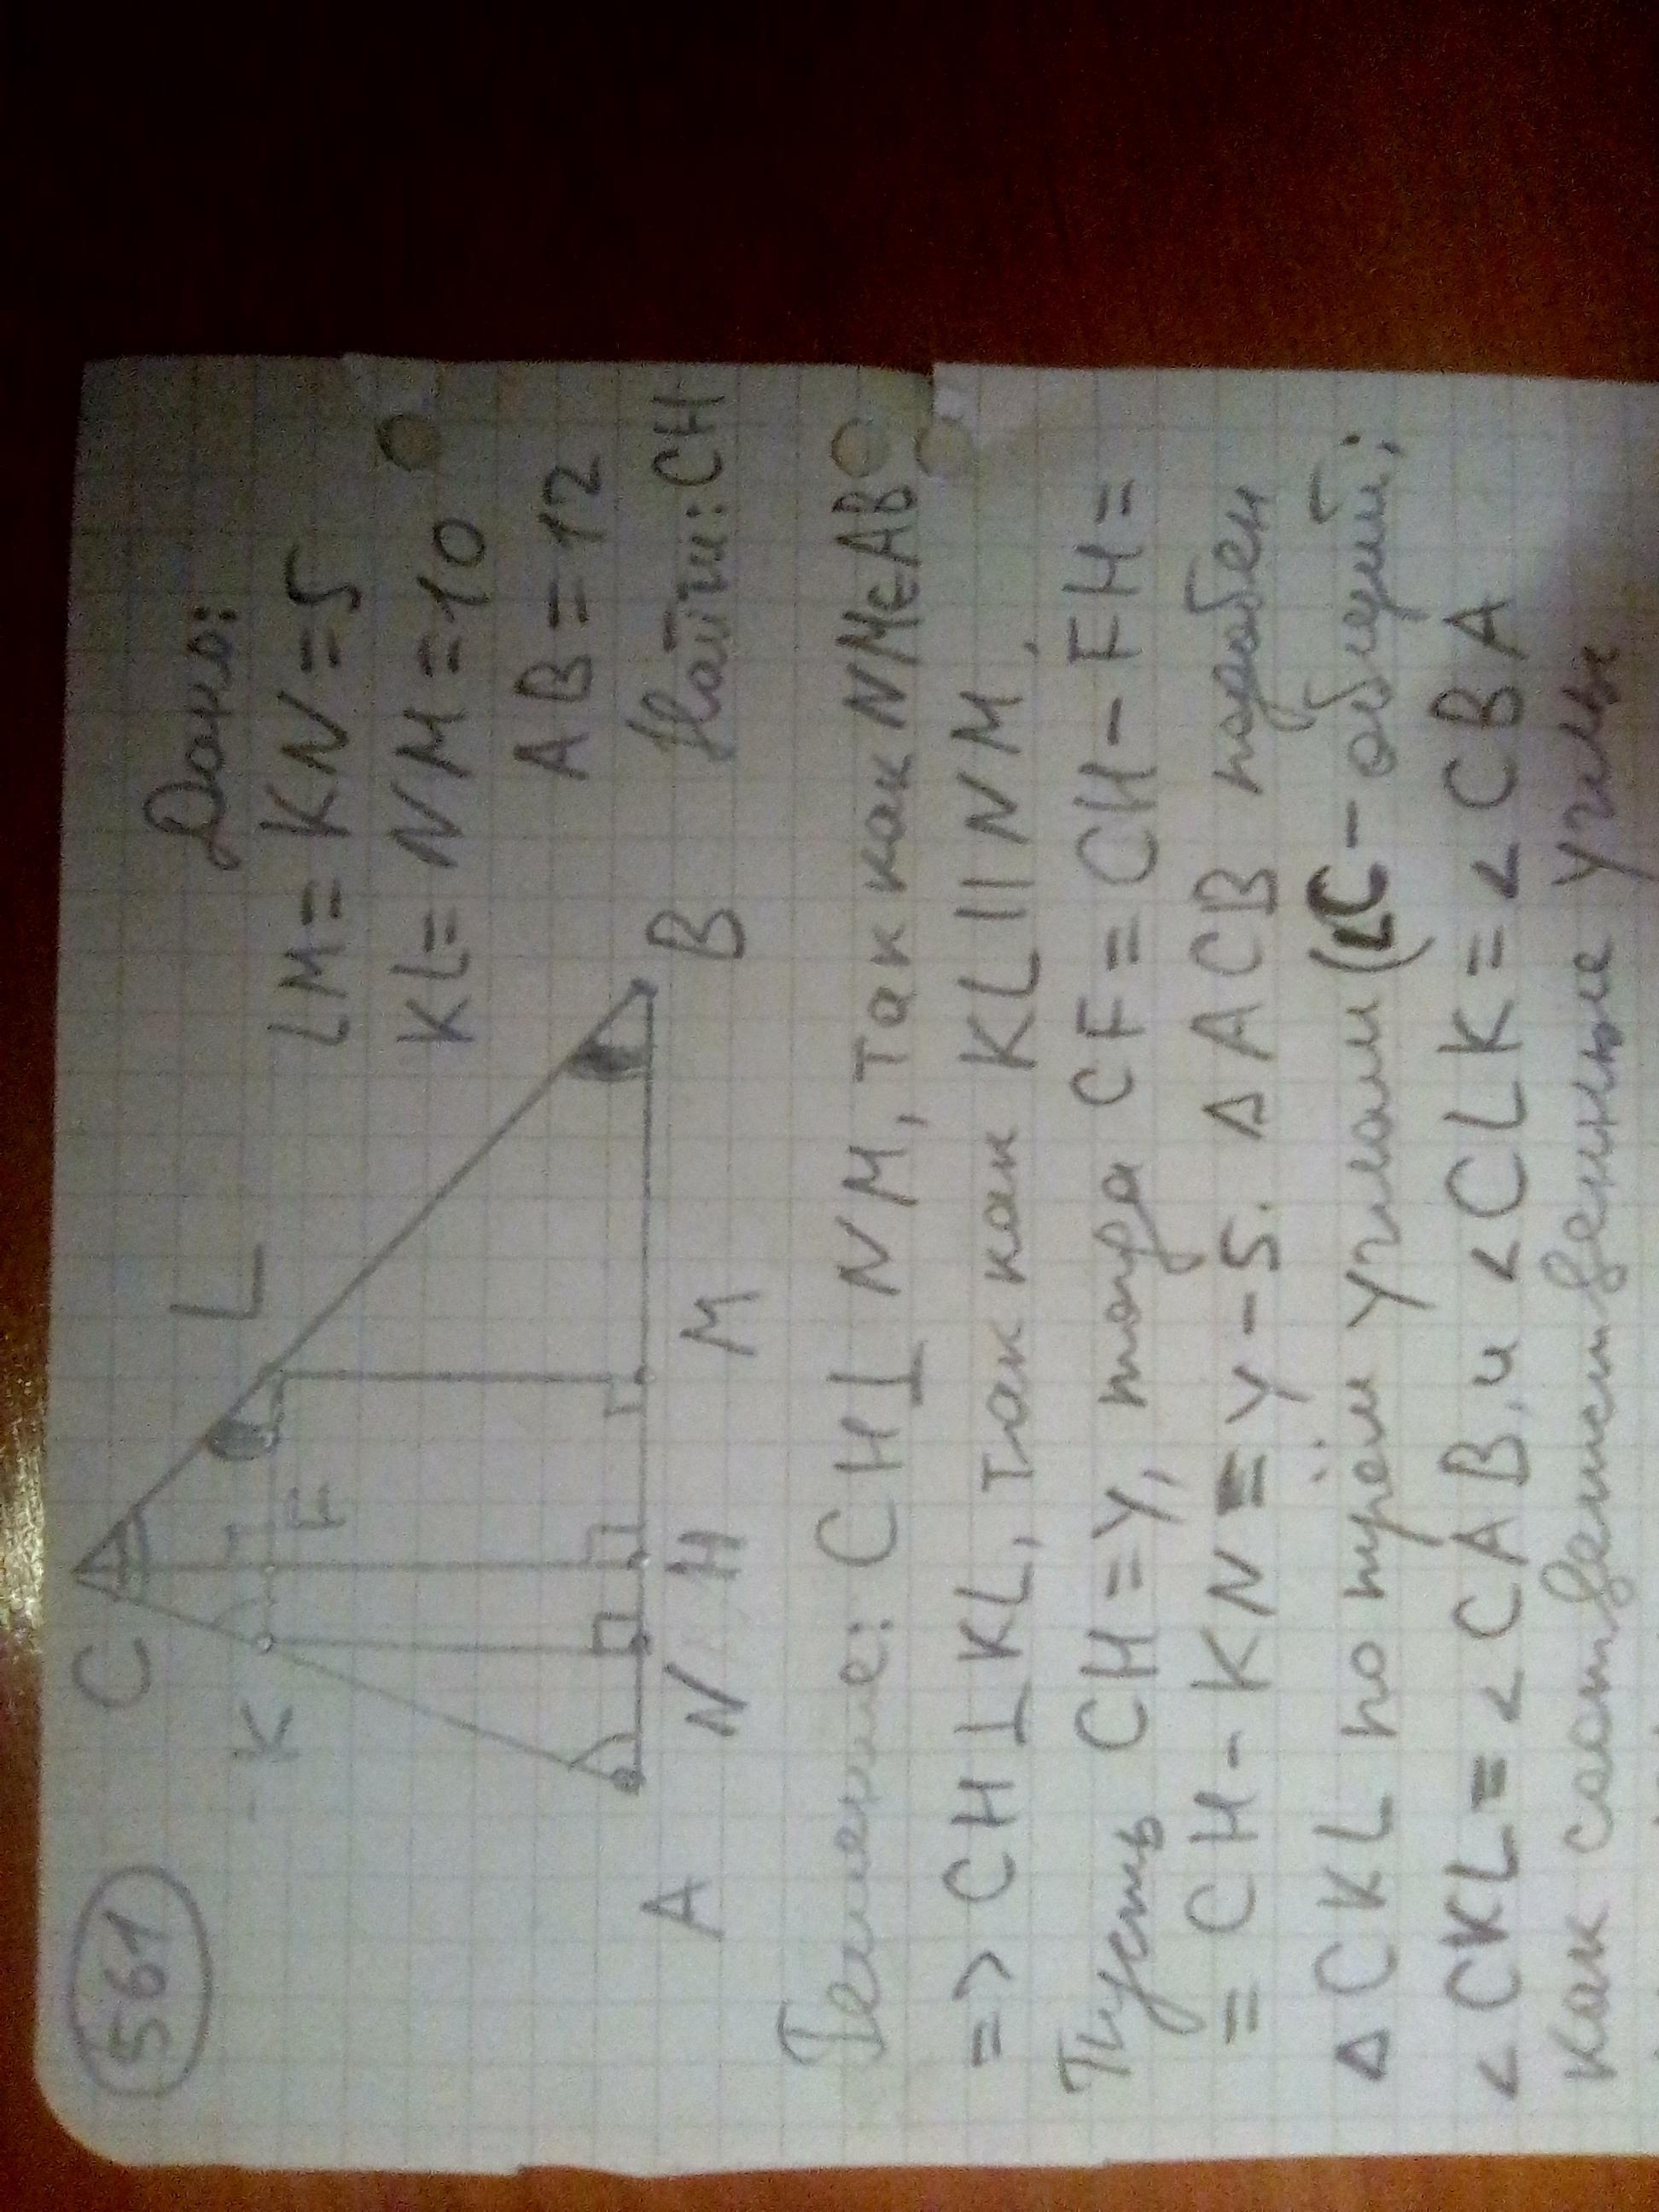 561
Дано:
LM = KN = 5
KL = NM = 10
AB = 12
Найти: CH
C
K
L
F
A
N
H
M
B
Решение: CH ⊥ NM, так как NM ∈ AB
=> CH ⊥ KL, так как KL || NM.
Пусть CH = y, тогда CF = CH - FH =
= CH - KN = y - 5. Δ ACB подобен
Δ CKL по трём углам (∠C - общий;
∠ CKL = ∠ CAB, и ∠ CLK = ∠ CBA
как соответственные углы